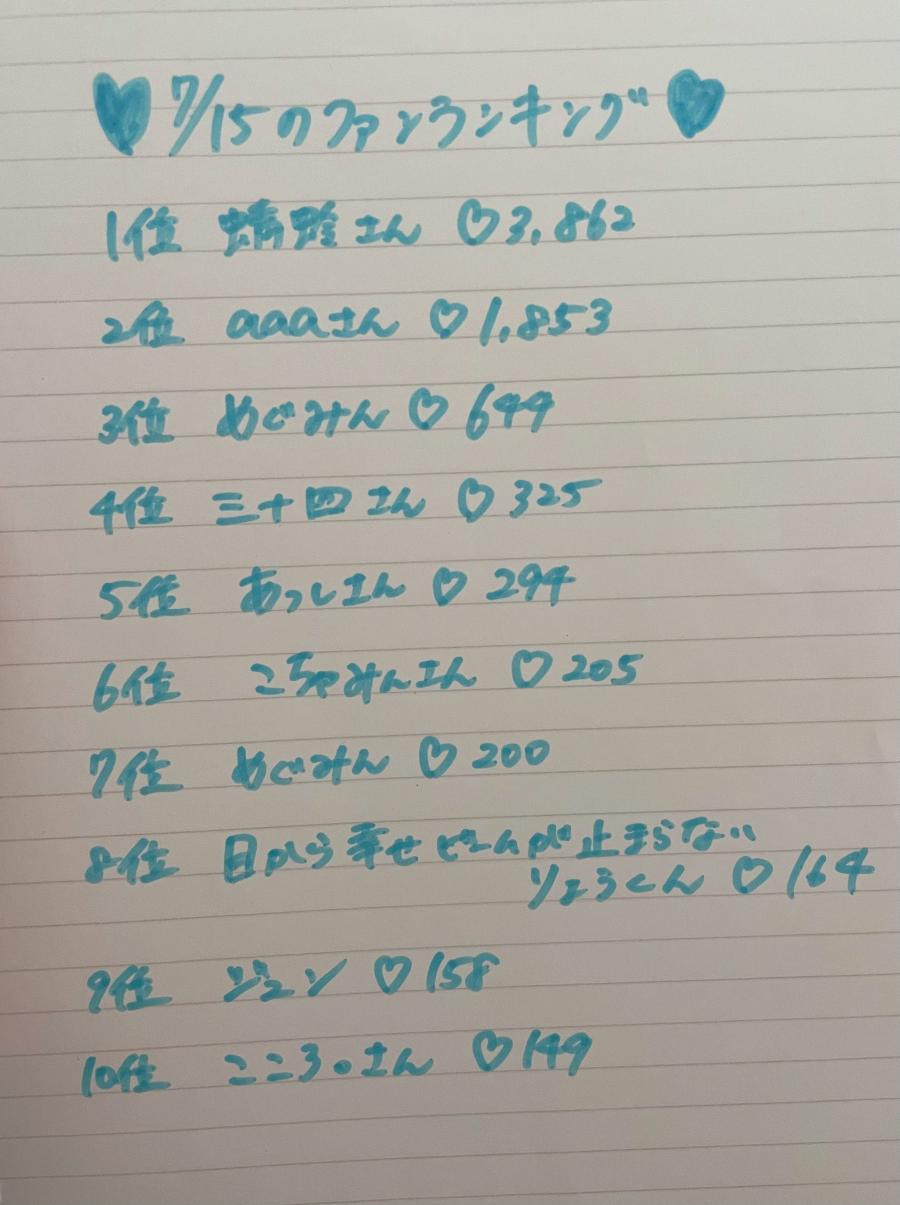 ♥7/15のファンランキング♥
1位 蜻蛉さん ♡3,862
2位 aaaさん ♡1,853
3位 めぐみん ♡644
4位 三十四さん ♡325
5位 あっしさん ♡294
6位 こちゃみんさん ♡205
7位 めぐみん ♡200
8位 目から幸せビームが止まらない
りょうくん ♡164
9位 ジュン ♡158
10位 こころ。さん ♡149